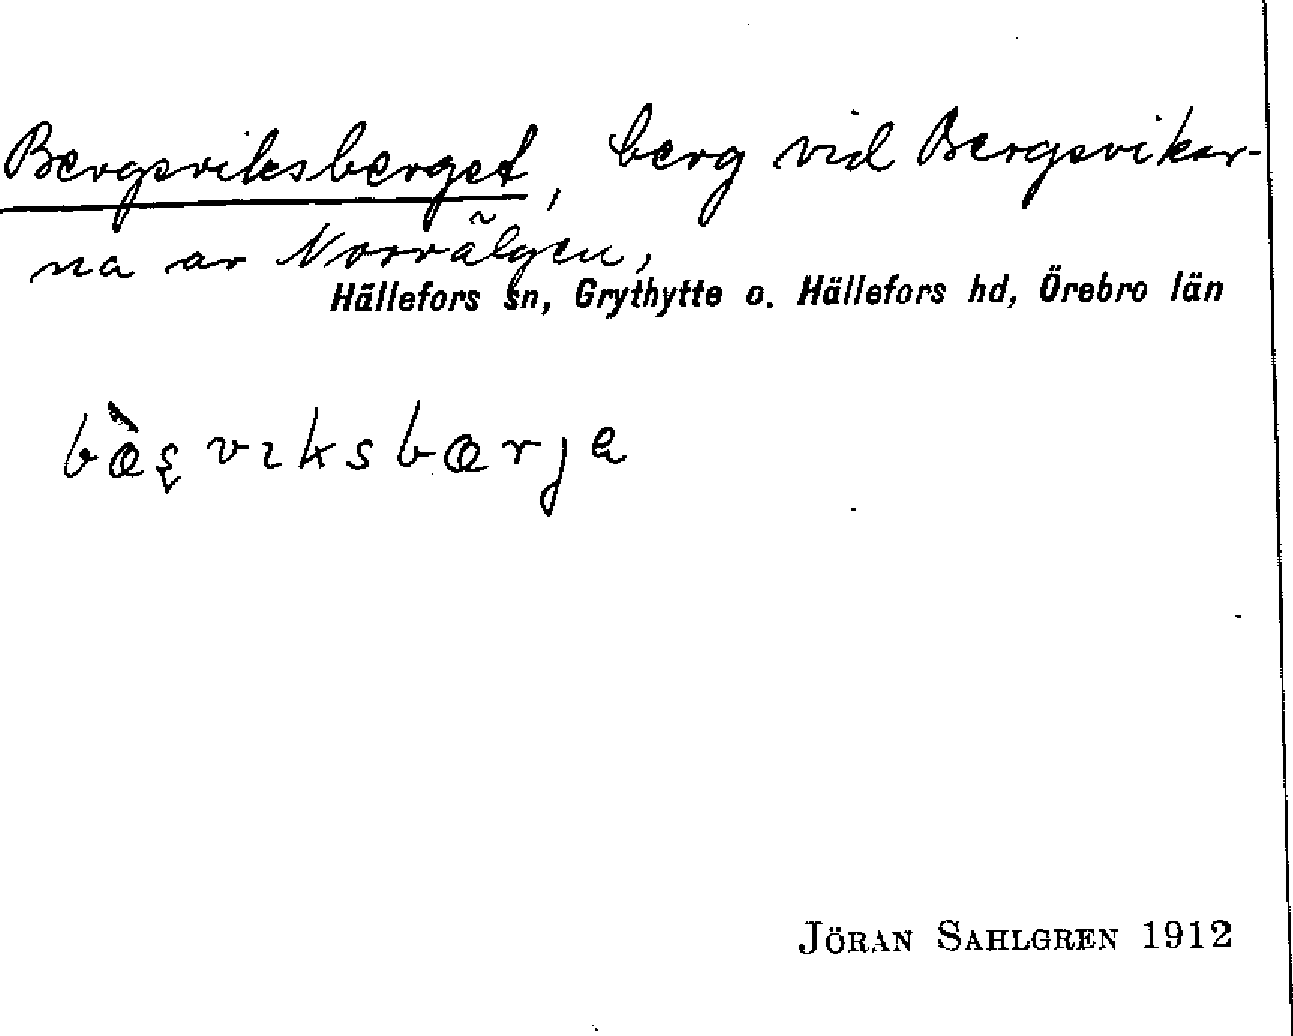 Bergsviksberget, berg vid Bergsvikar-
na av Norrälgen,
Hällefors sn, Grythytte o. Hällefors hd, Örebro län
bæ̀ʂvıksbærjɑ
JÖRAN SAHLGREN 1912